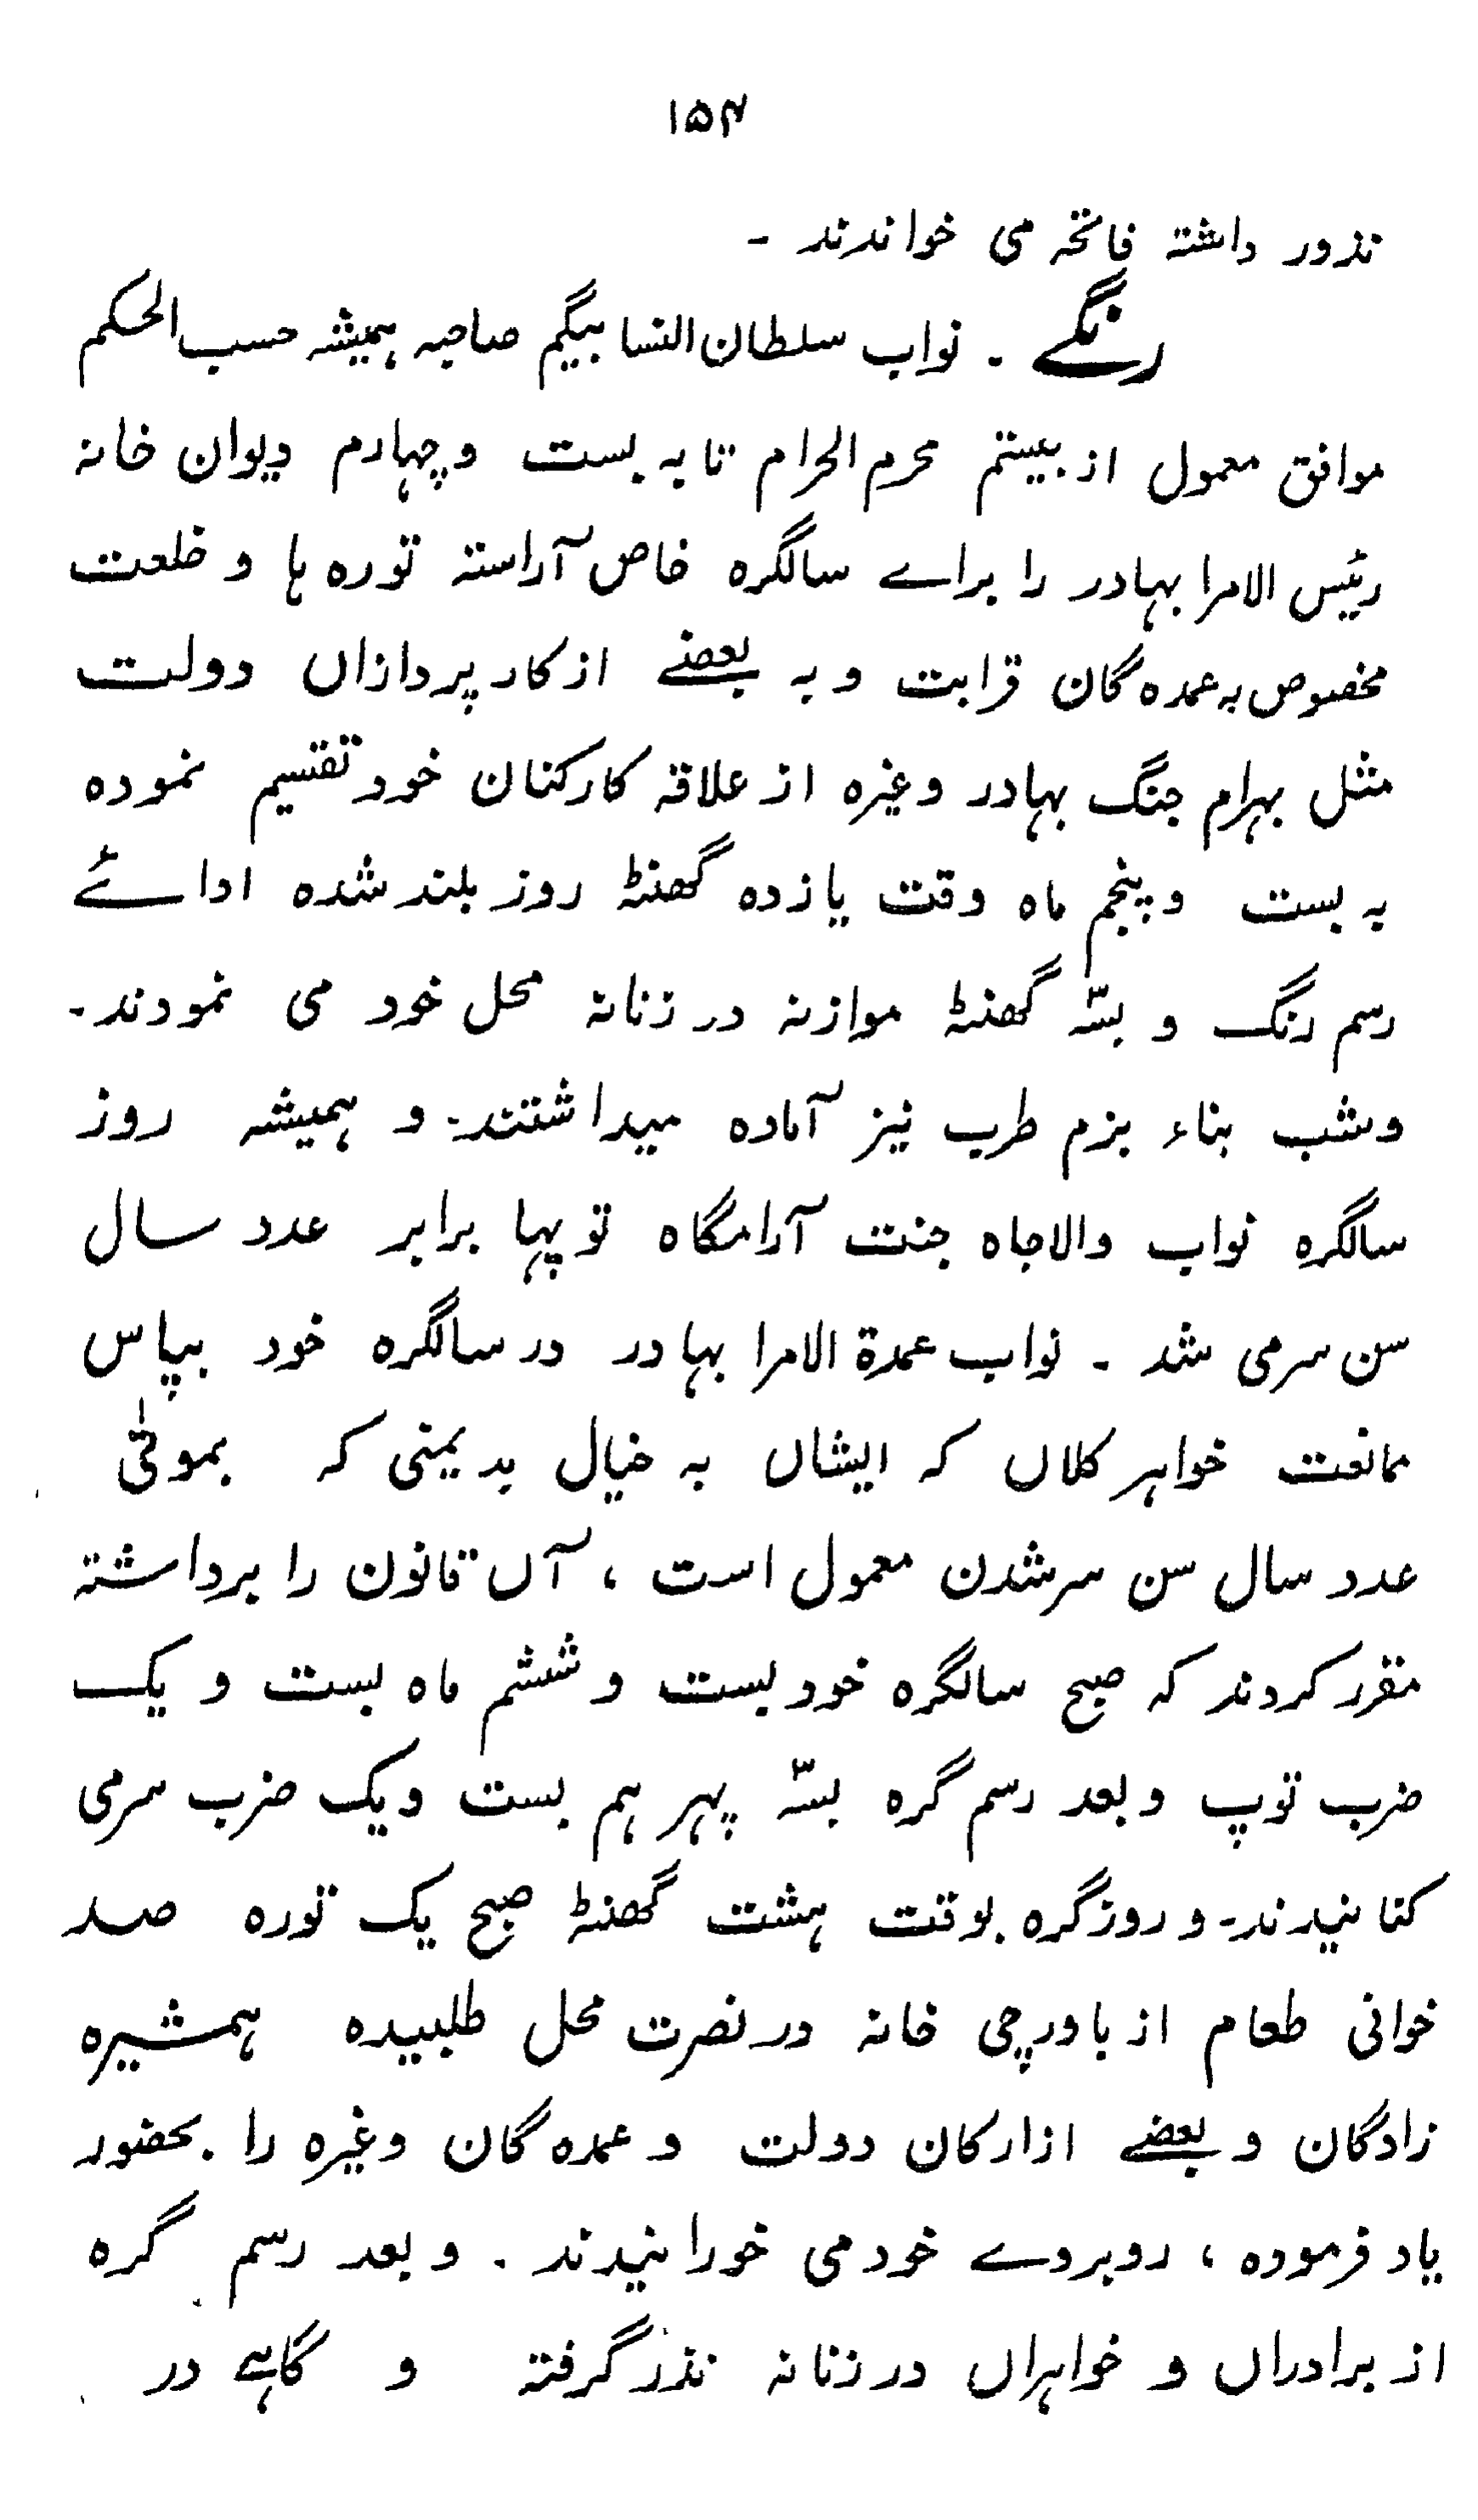 ۱۵۴
نذور داشتہ فاتحہ می خواندند ۔
رنگے ۔ نواب سلطان النسا بیگم صاحبہ ہمیشہ حسب الحکم
موافق معمول از بیستم محرم الحرام تا بہ بست و چہارم دیوان خانہ
رئیس الامرا بہادر را براے سالگرہ خاص آراستہ تورہ ہا و خلعت
مخصوص بہ عمدہ گان قرابت و بہ بعضے از کار پردازاں دولت
مثل بہرام جنگ بہادر وغیرہ از علاقہ کارکنان خود تقسیم نمودہ
بہ بست و پنجم ماہ وقت یازدہ گھنٹہ روز بلند شدہ اداے
رسم رنگ و بسہ گھنٹہ موازنہ در زنانہ محل خود می نمودند۔
و شب بناء بزم طرب نیز آمادہ میداشتند۔ و ہمیشہ روز
سالگرہ نواب والاجاہ جنت آرامگاہ توپہا برابر عدد سال
سن سرمی شد ۔ نواب عمدۃ الامرا بہادر در سالگرہ خود بپاس
ممانعت خواہر کلاں کہ ایشاں بہ خیال بدیمنی کہ بموتیٰ
عدد سال سن سر شدن معمول است ، آں قانون را برداشتہ
مقرر کردند کہ صبح سالگرہ خود بست و ششم ماہ بست و یک
ضرب توپ و بعد رسم گرہ بسہّ پہر ہم بست و یک ضرب سرمی
کنانیدند۔ و روز گرہ بوقت ہشت گھنٹہ صبح یک تورہ صد
خوانی طعام از باورچی خانہ در نصرت محل طلبیدہ ہمشیرہ
زادگان و بعضے از ارکان دولت و عمدہ گان وغیرہ را بحضور
یاد فرمودہ ، روبروے خود می خورانیدند ۔ و بعد رسم گرہ
از برادراں و خواہراں در زنانہ نذر گرفتہ و گاہے در